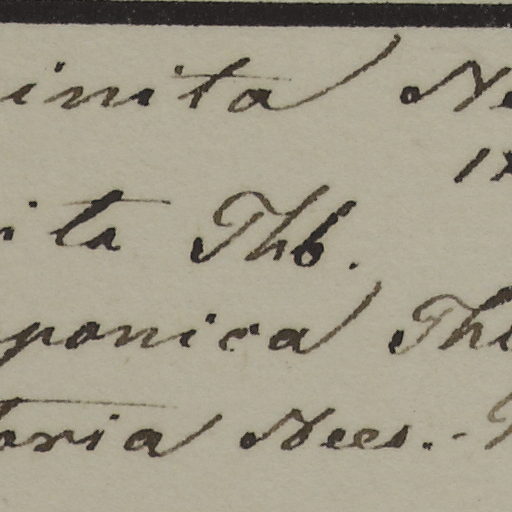 inita Ne
ita Thb.
ponica Th
taria Nees. -